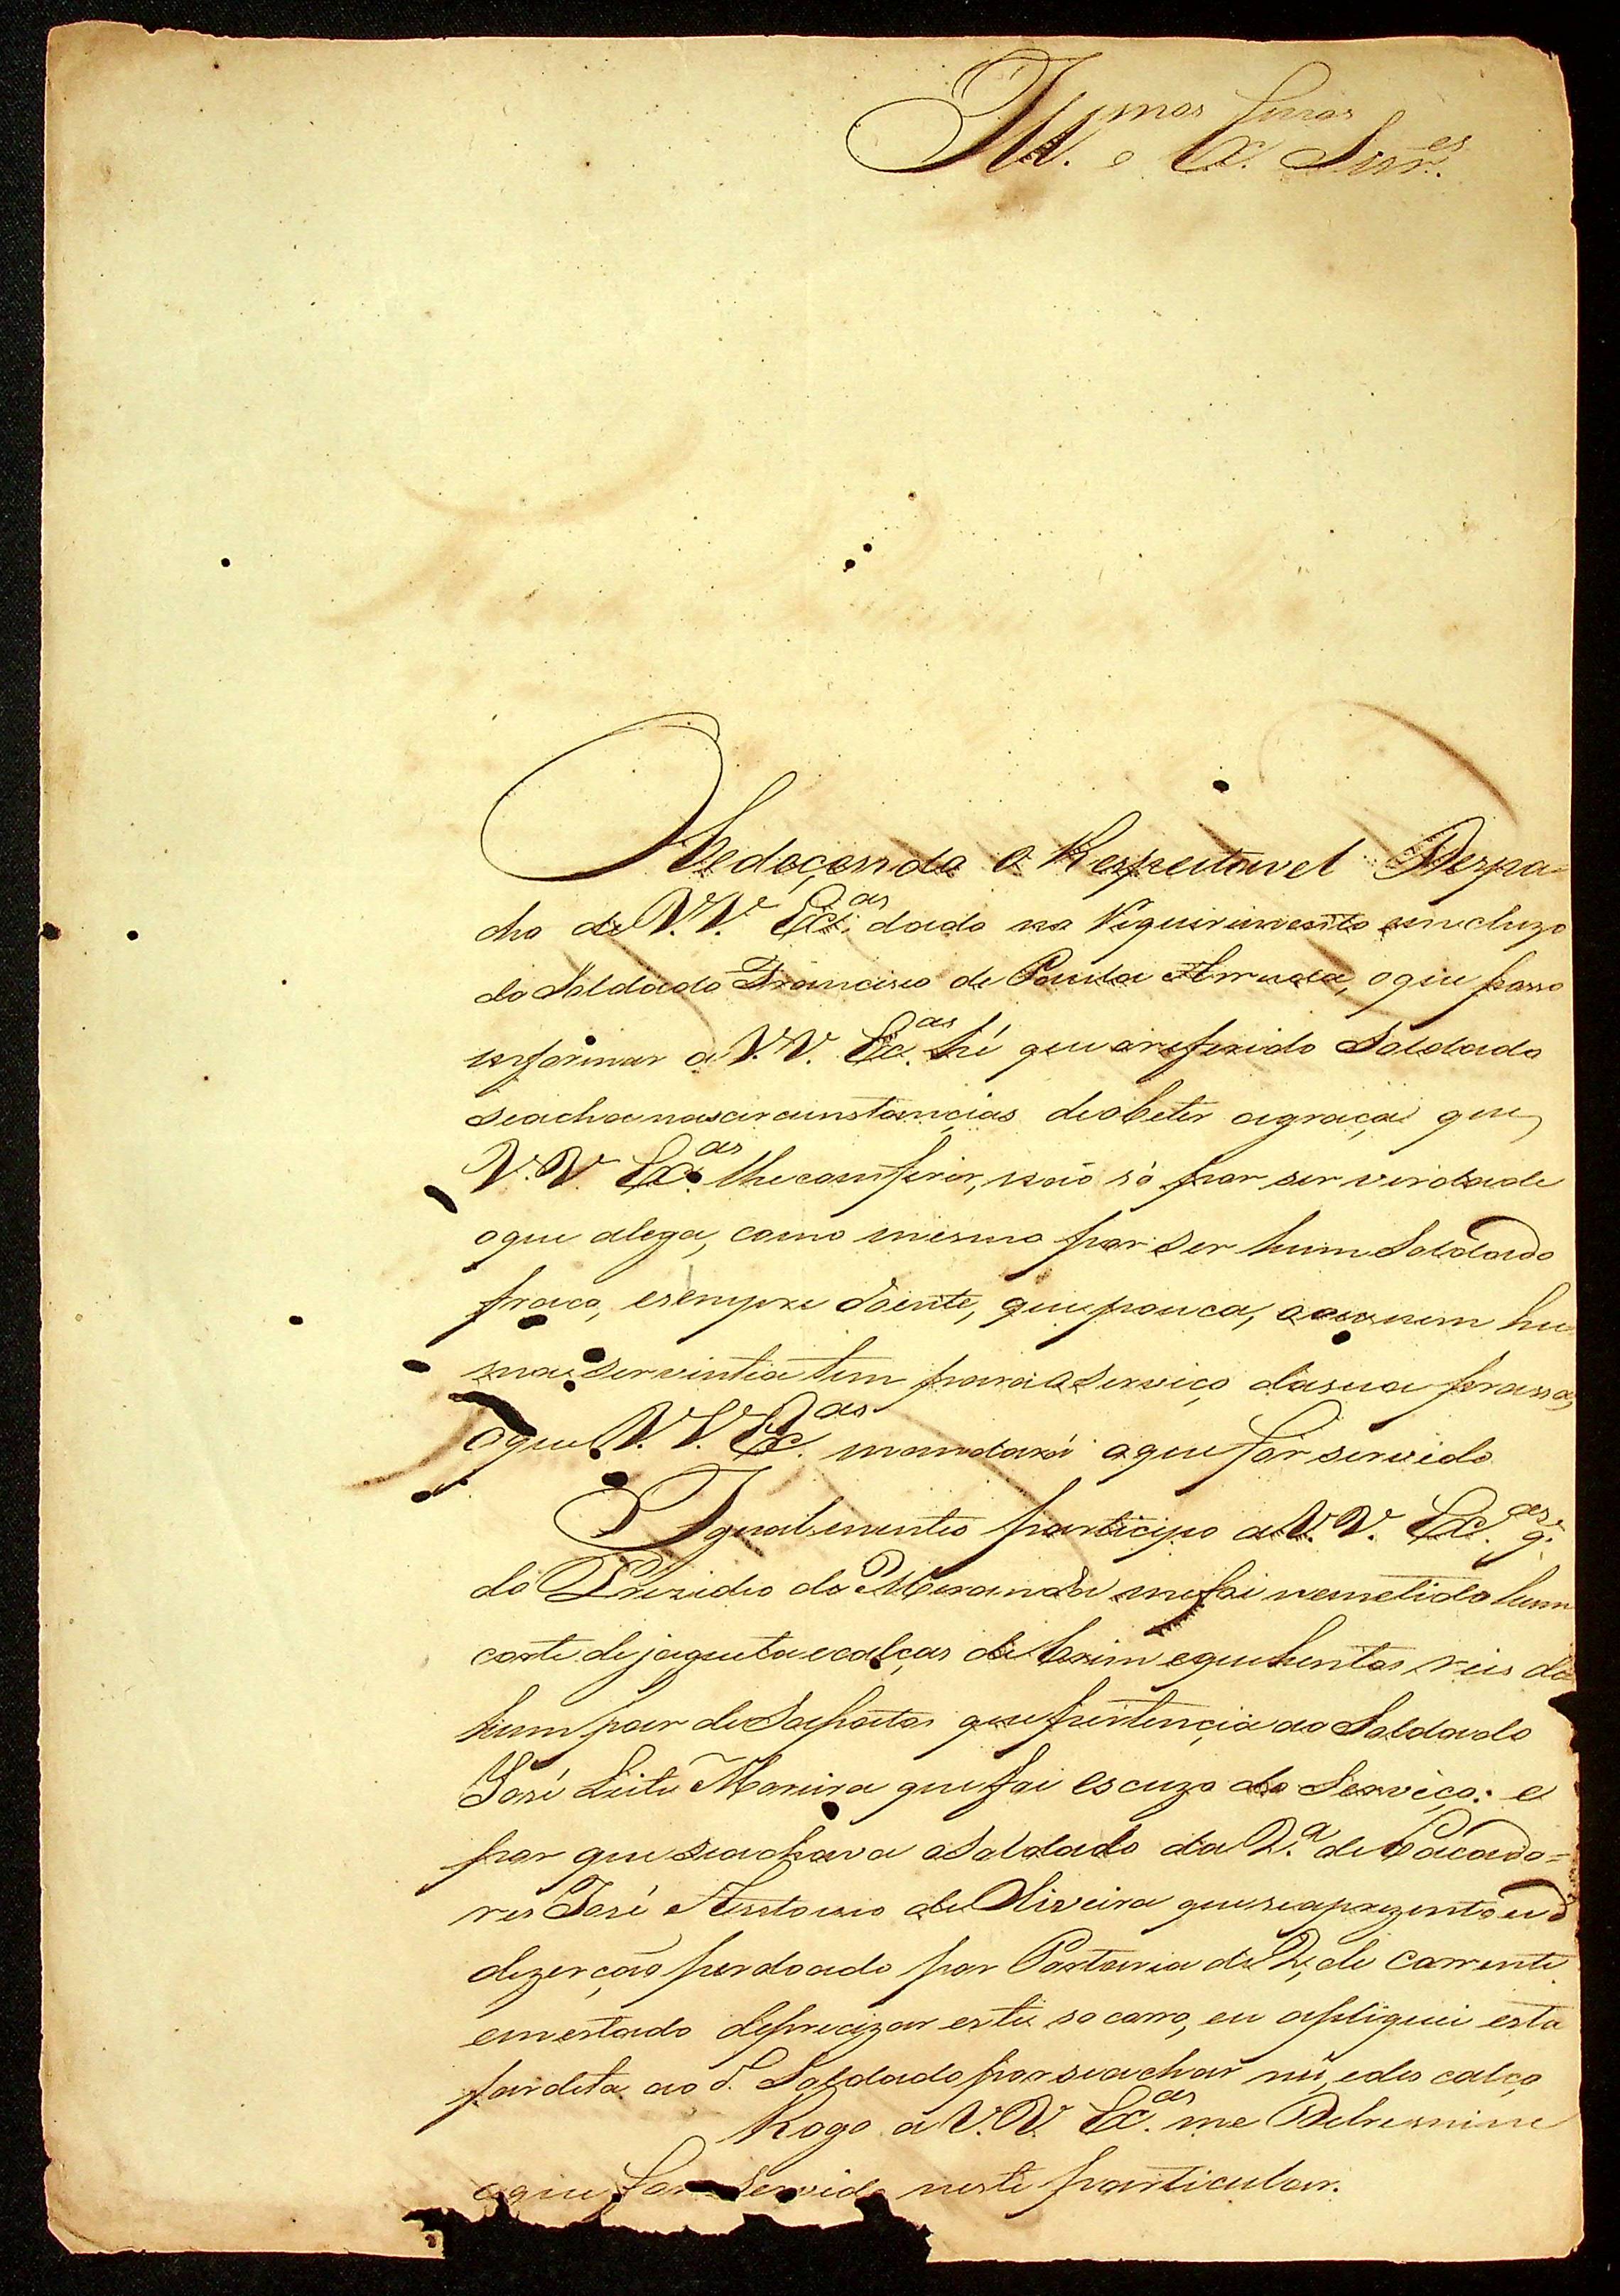 Ill.mos e Ex.mos Snr.es
Obedecendo o Respeitavel Despa=
cho de V.V. Ex.as dado no Riquirimento imcluzo
do Soldado Francisco de Paula Arruda, oque posso
informar a V.V. Ex.as hé que oreferido Soldado
seacha nascircunstancias deobeter agraça que
V.V. Ex.as lhe comferir, não só por ser virdade
oque alega, como mesmo por ser hum Soldado
fraco, esempre doente, que pouca, ou nem hu
ma servintia tem para o serviço dasua prassa,
oque V.V. Ex.as mandará oque for servido
Igualmente participo a V.V. Ex.as q.
do Prezidio do Miranda mefoi remetido hum
corte de jaqueta ecalças de brim equinhentos reis de
hum par de Sapatos que pertencia ao Soldado
José Leite Moreira que foi escuzo do Serviço: e
por que seachava oSoldado da 2.a de Caçado=
res José Antonio de Oliveira que seaprezentou d
dizerção perdoado por Portaria de 2, de corrente
emestado deprecizar este socorro, eu apliquei esta
fardeta ao d. Soldado por seachar nú, edes calço
Rogo a V.V. Ex.as me Detremine
oque for Servido neste particular.